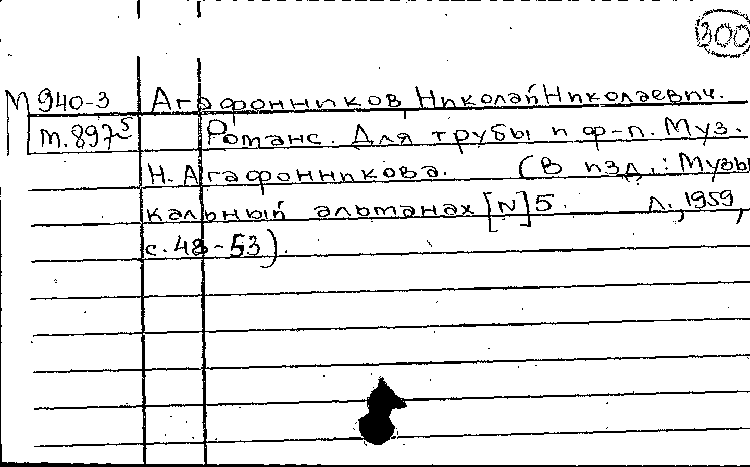 300
М 940-3 Агафонников, Николай Николаевич.
т. 897 Романс. Для трубы и ф-п. Муз.
Н. Агафонникова. (В изд.: Музы
кальный альманах [N] 5. Л., 1959,
с. 48-53).